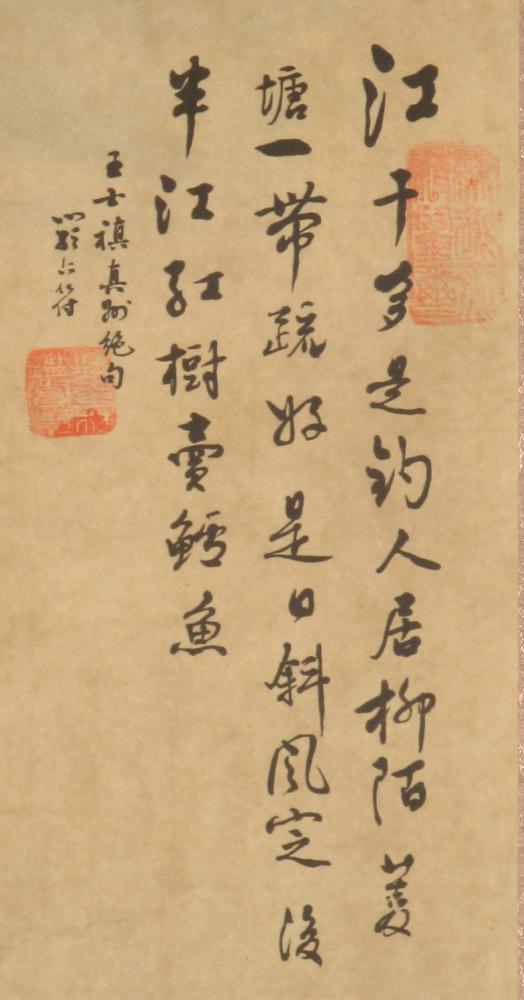 江干多是釣人居柳陌菱
塘一帶疏好是日斜風定後
半江紅樹賣鱸魚
王士禛真州絕句